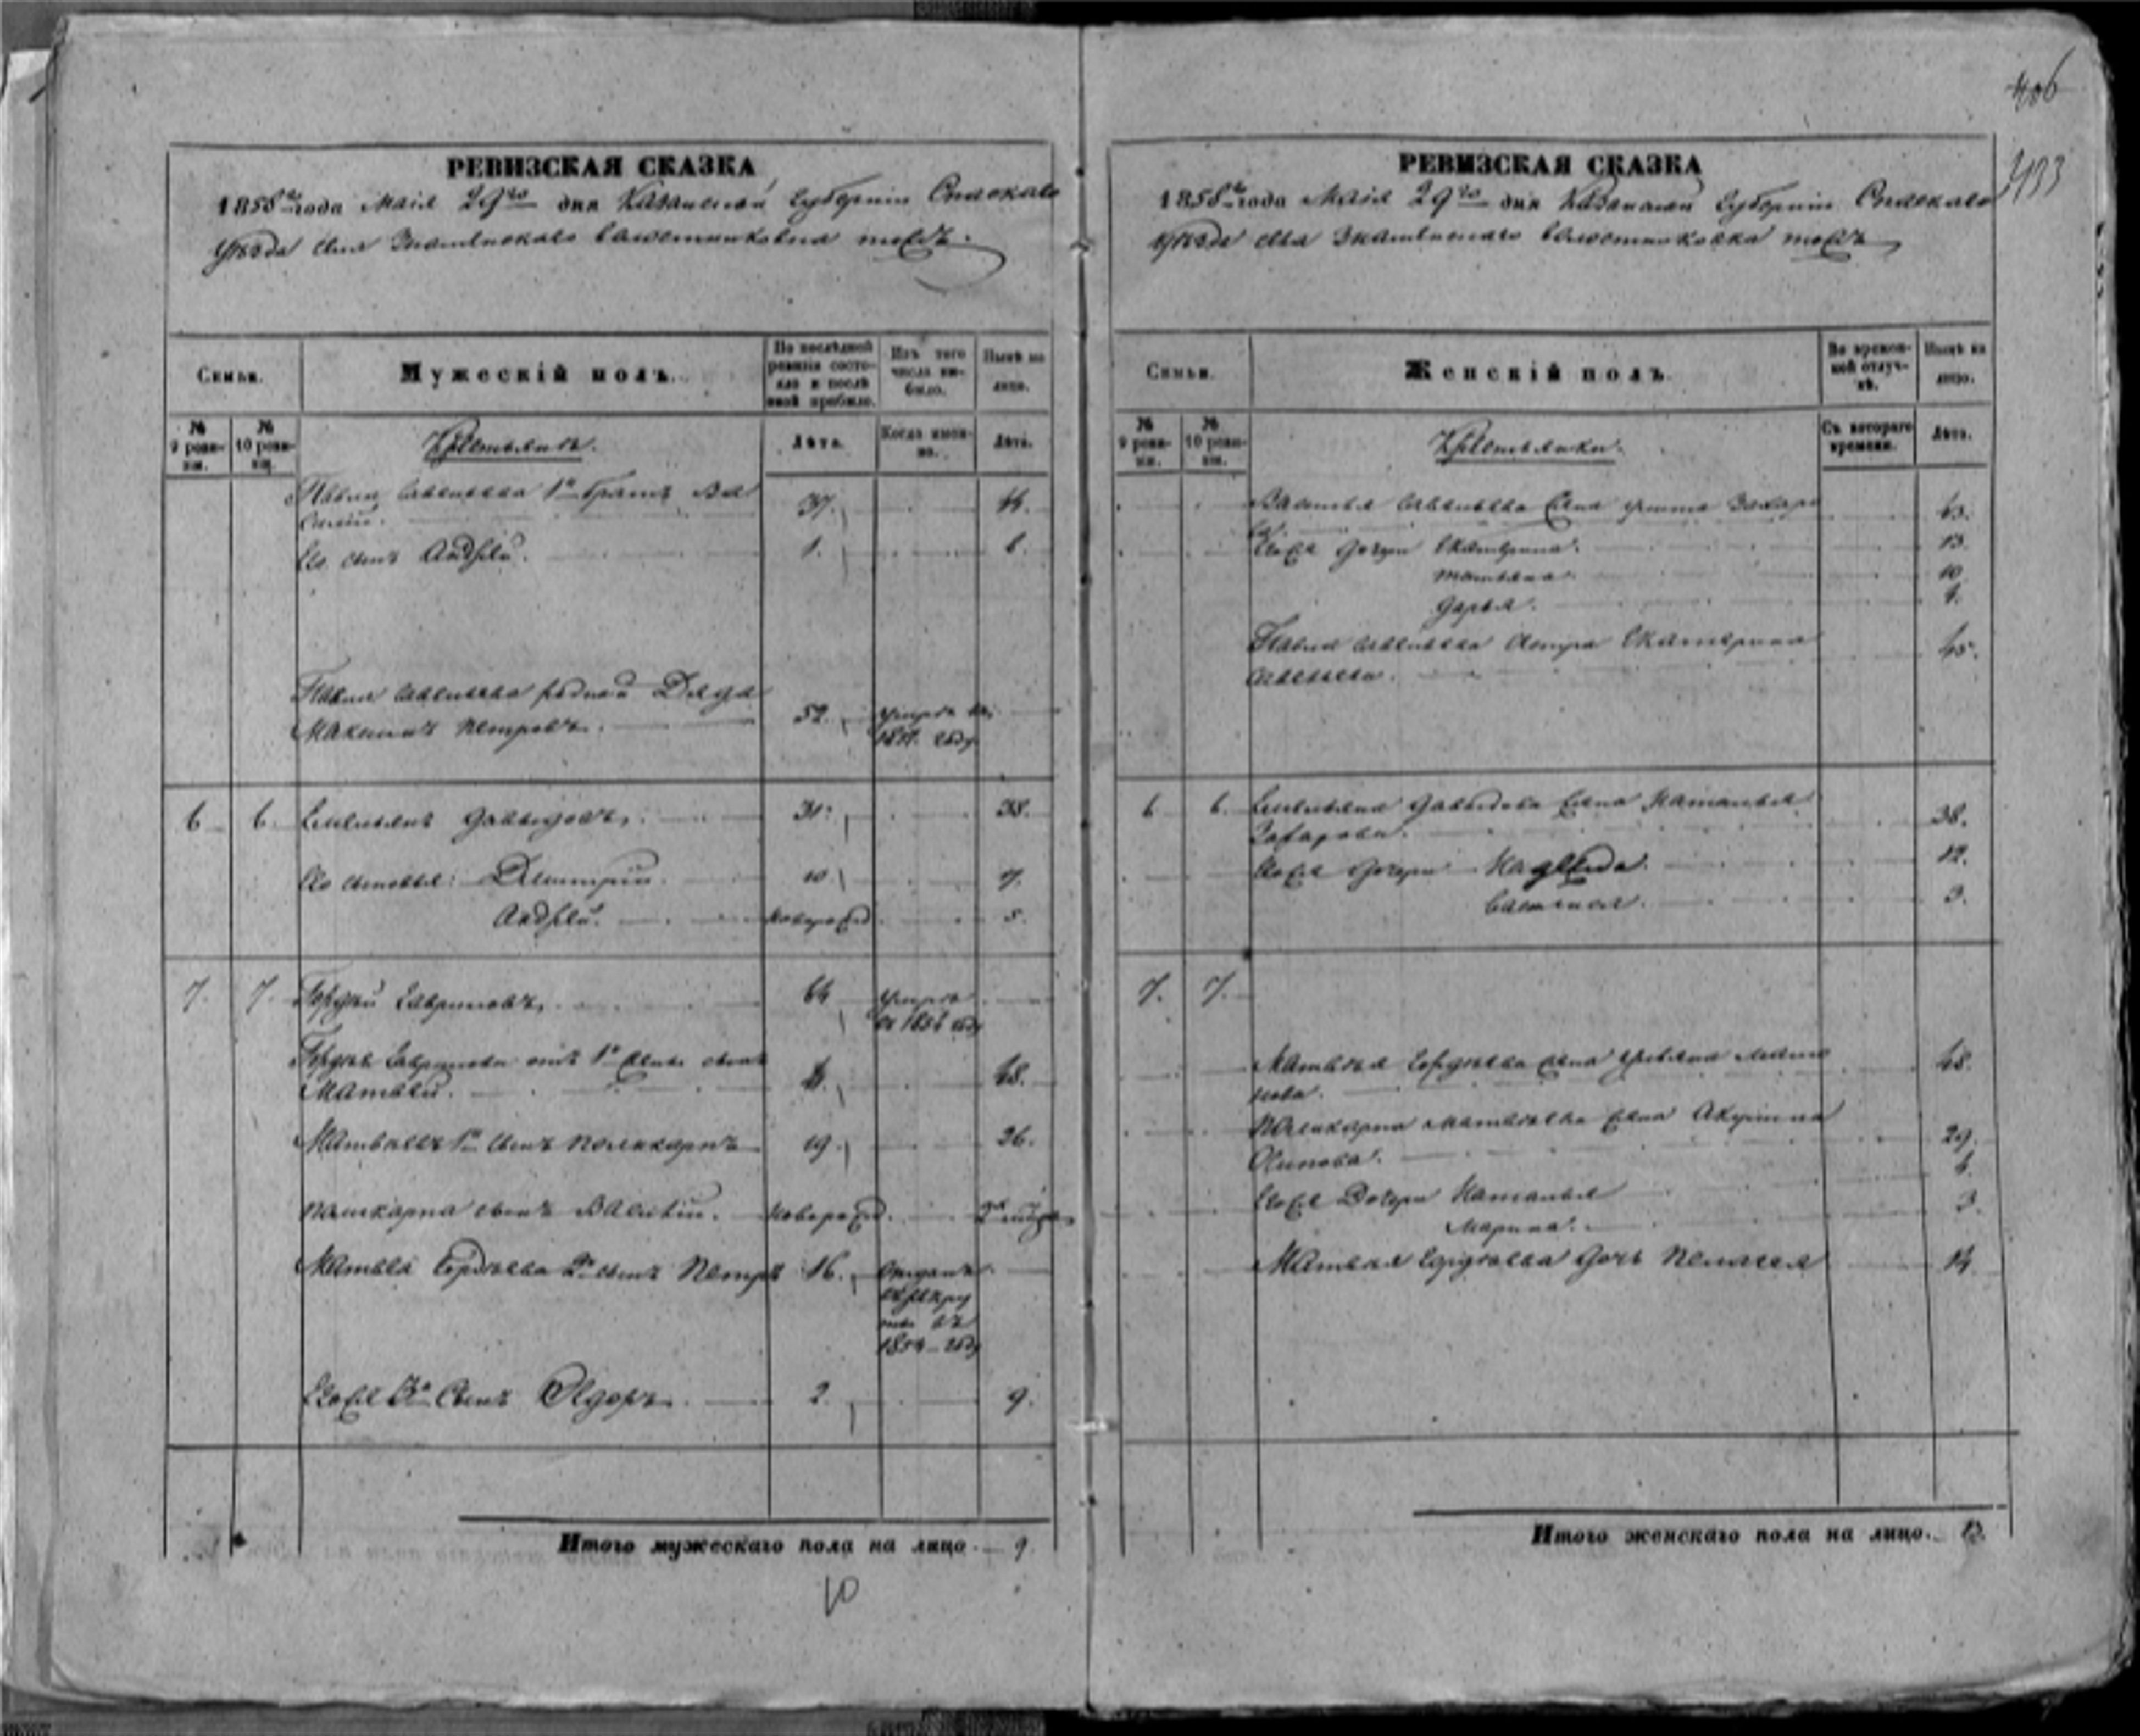 406
433
РЕВИЗСКАЯ СКАЗКА
1858 года Маія 29го дня Казанской Губерніи Спаскаго
уѣзда села Знаменскаго
Семьи.
Мужескій полъ.
По послѣдней ревизіи состояло и послѣ оной прибыло.
Изъ того числа выбыло.
Нынѣ на лицо.
№ 9 ревизіи.
№ 10 ревизіи.
Крестьянъ.
Лѣта.
Когда именно.
Лѣта.
Павла Савельева 1й братъ Ва
силій. 37. 44.
Его сынъ Андрей. 1. 8.
Павла Савельева родной Дядя
Максимъ Петровъ. 52. умеръ въ
году
6 6. Емельянъ Давыдовъ. 31. 38.
Его сыновья: Дмитрій. 10. 17.
Андрей. новорожд. 5.
7. 7. Гордѣй Гавриловъ. 64 умеръ
въ году
Гордѣя Гаврилова отъ 1й жены сынъ
Матвѣй. 48.
Матвѣевъ 1й сынъ Поликарпъ 19. 26.
Поликарпа сынъ Василій. новорожд.
Матвѣя Гордѣева 2й сынъ Петръ 16. Отданъ
въ рекру
ты въ
1854 году
Его же 3й Сынъ Ѳедоръ. 2. 9.
Итого мужескаго пола на лицо 9.
10
РЕВИЗСКАЯ СКАЗКА
1858 года Маія 29го дня Казанской Губерніи Спаскаго
уѣзда села Знаменскаго
Семьи.
Женскій полъ.
Во временной отлучкѣ.
Нынѣ на лицо.
№ 9 ревизіи.
№ 10 ревизіи.
Крестьянки.
Съ котораго времени.
Лѣта.
Василья Савельева жена Захаро
ва. 43.
Его же дочери Екатерина. 13.
Татьяна. 10
Дарья.
Павла Савельева сестра Екатерина
Савельева. 45.
6 6. Емельяна Давыдова жена Наталья
Захарова. 38.
Его же дочери Надежда. 12.
3.
7. 7.
Матвѣя Гордѣева жена 48.
Поликарпа Матвѣева жена Акулина
Осипова. 29.
Его же Дочери Наталья 6.
Марина. 3.
Матвѣя Гордѣева дочь Пелагея 14.
Итого женскаго пола на лицо. 13.